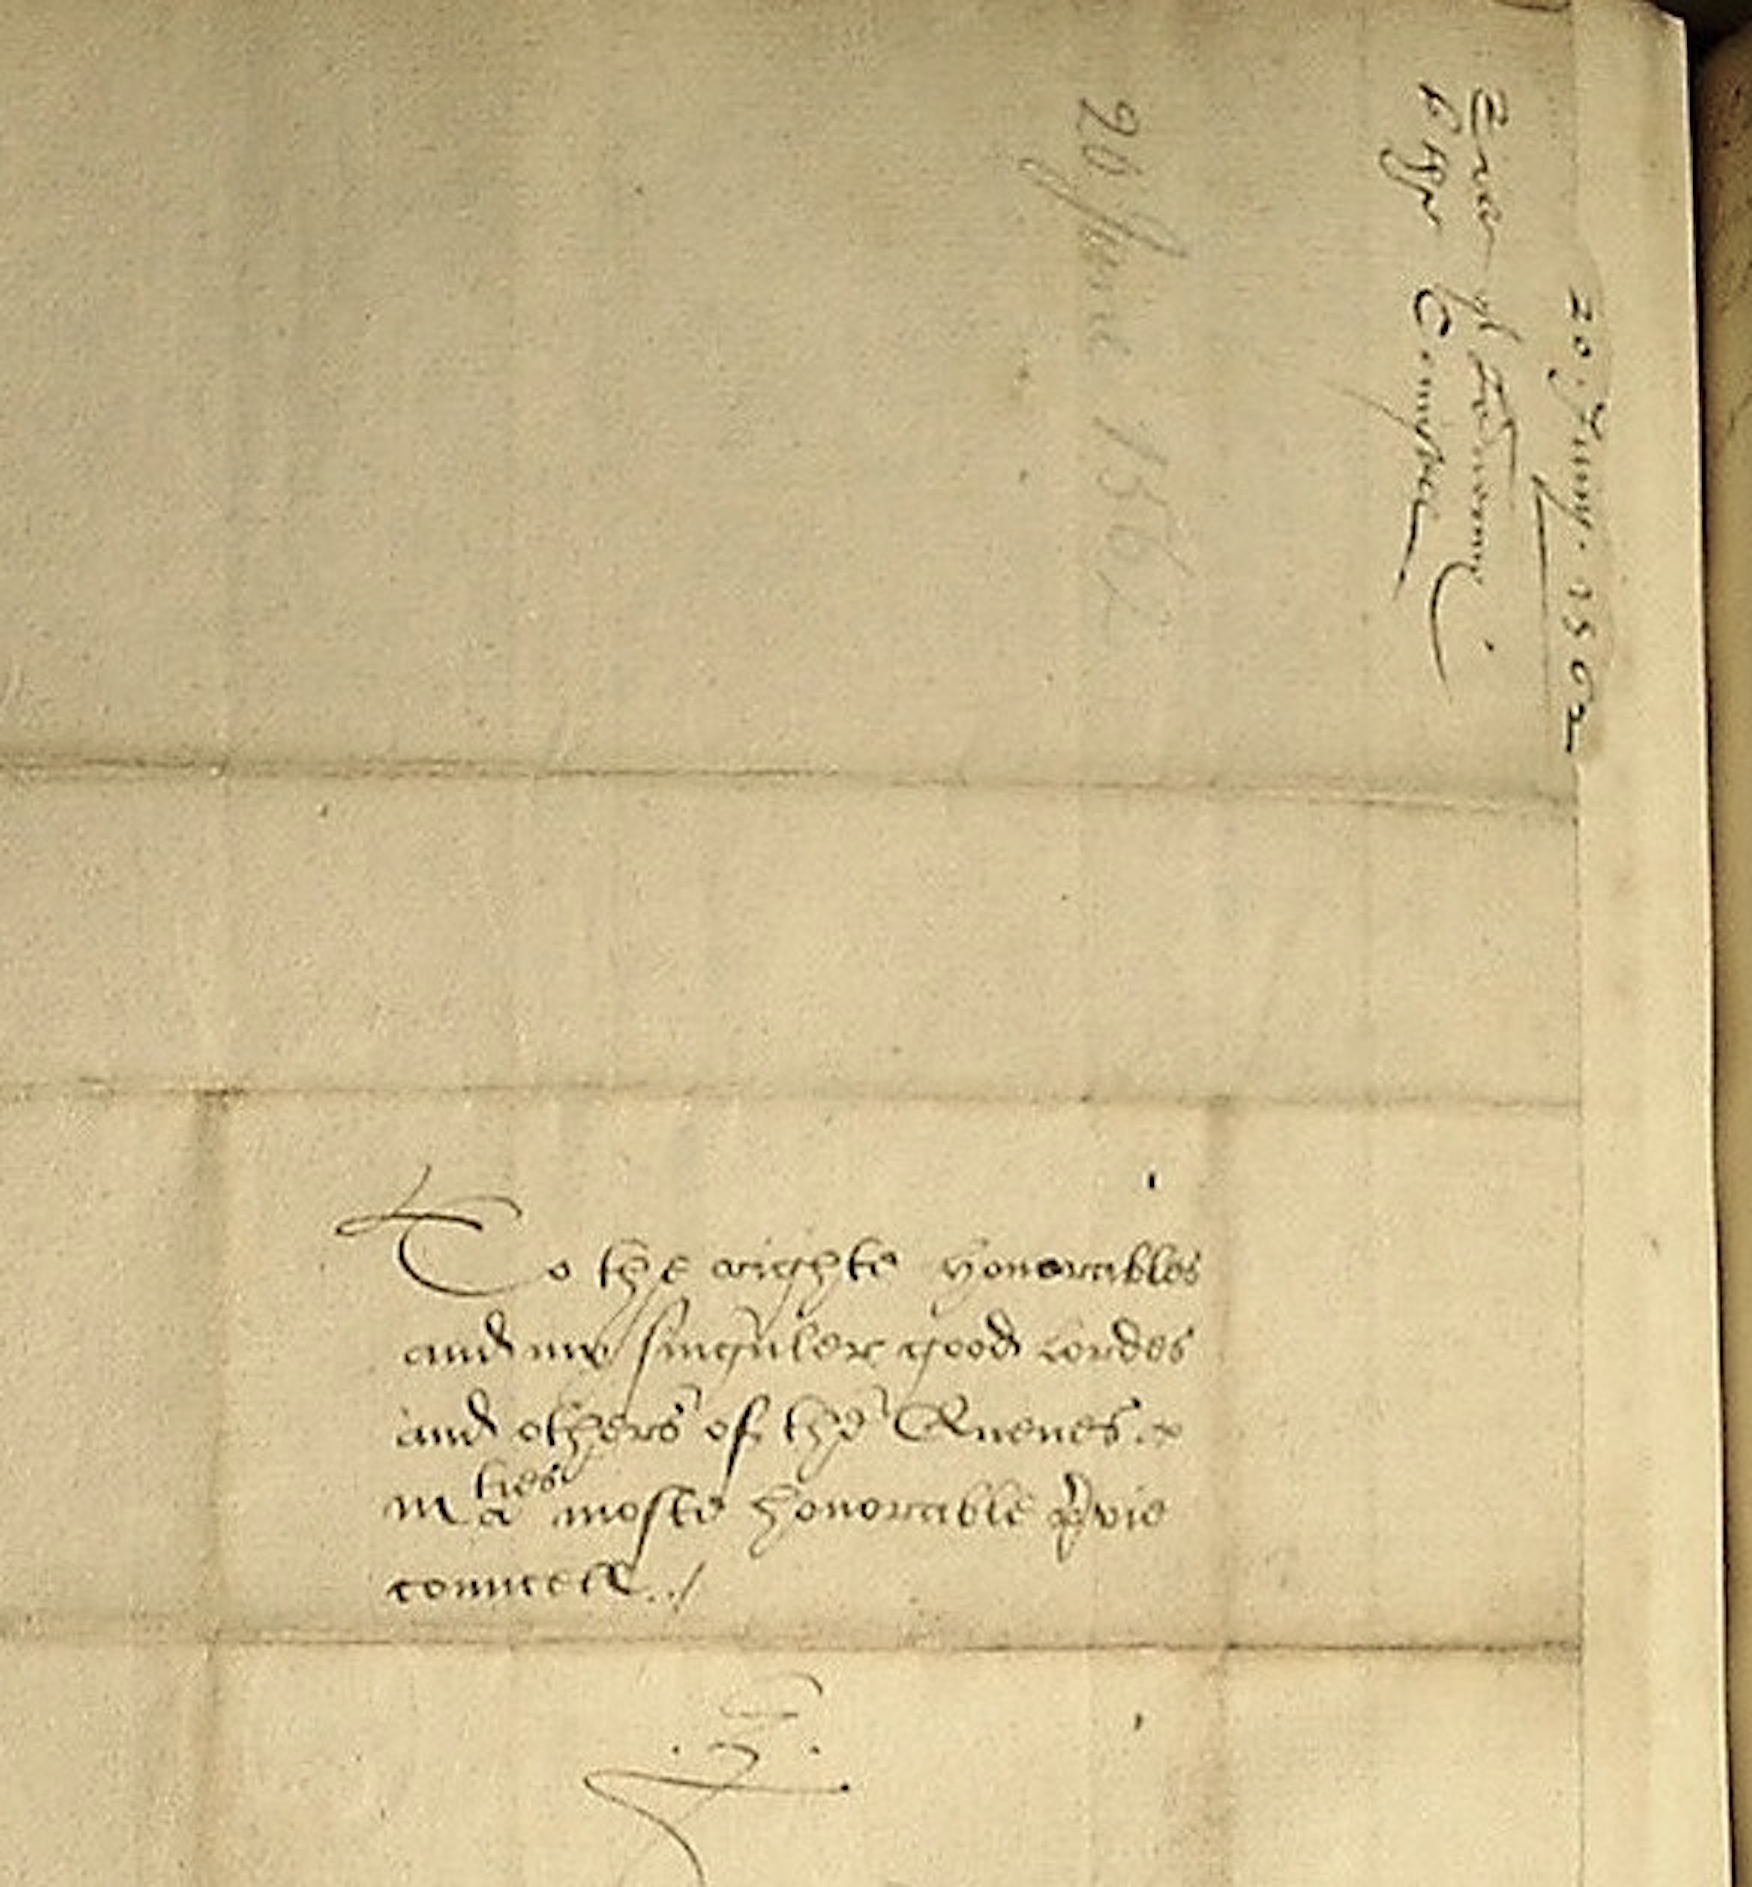 20. Juny. 1562
20 June 1562
To the righte honorables
and my singuler good Lordes
and others of the Quenes
Maties moste honorable privie
councell ./